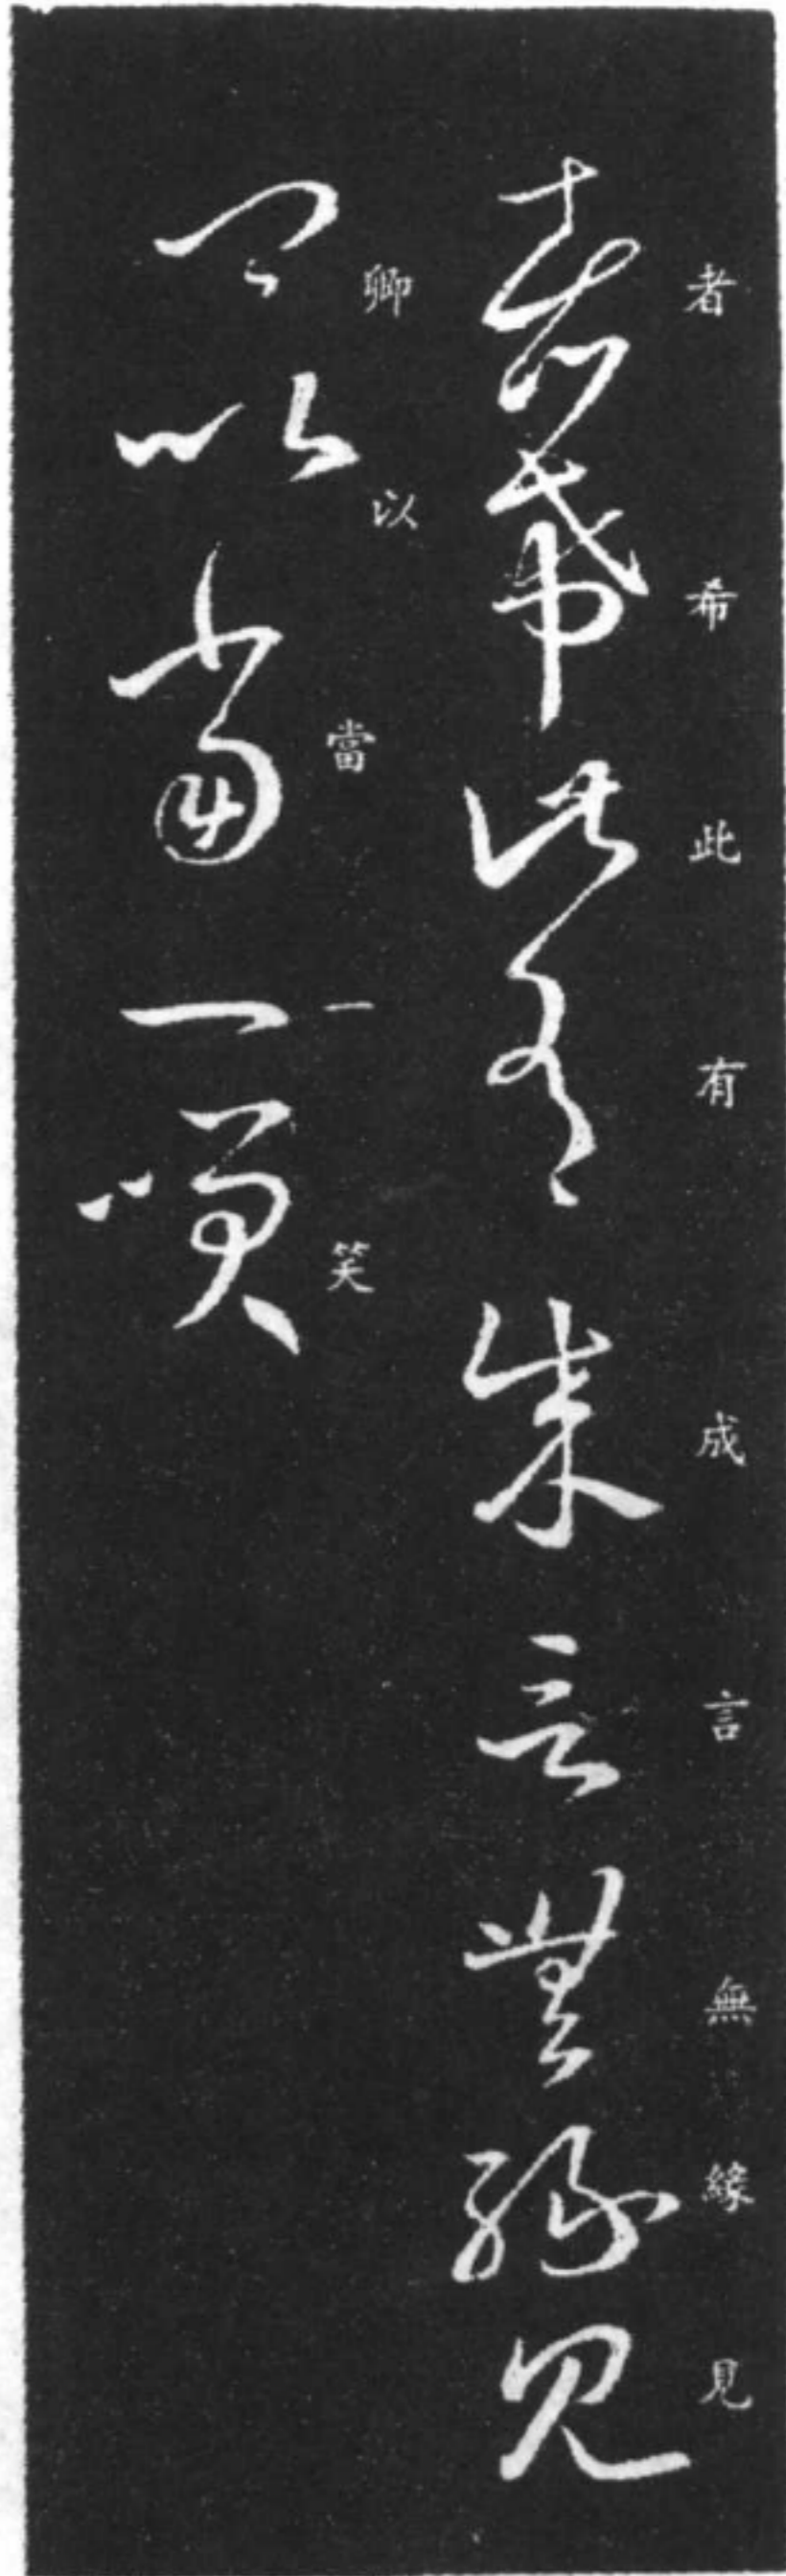 者希此有成言無緣見
卿以當一笑